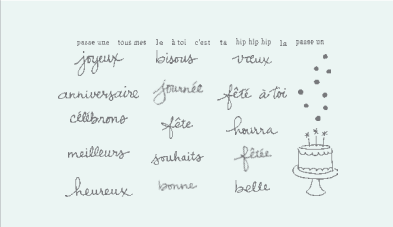 passe une tous mes le à toi c'est ta hip hip hip la passe un
joyeux bisous vœux
anniversaire journée fêté à toi
célébrons fête hourra
meilleurs souhaits fêtée
heureux bonne belle